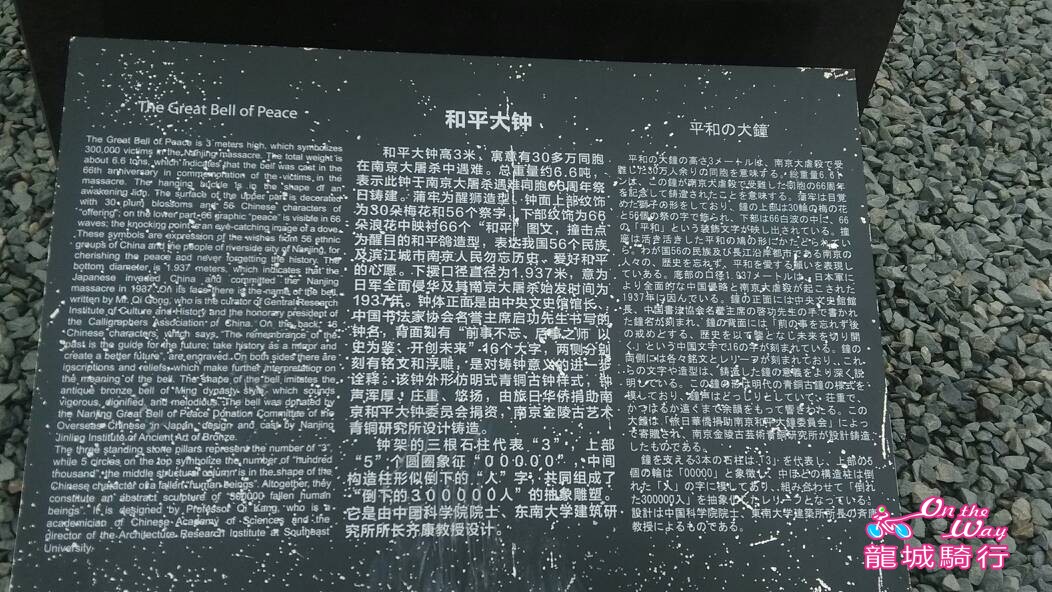 The Great Bell of Peace
The Great Bell of Peace is 3 meters high, which symbolizes
300,000 victims in the Nanjing massacre. The total weight is
about 6.6 tons, which indicates that the bell was cast in the
66th anniversary in commemoration of the victims in the
massacre. The hanging buckle is in the shape of an
awakening lion. The surface of the upper part is decorated
with 30 plum blossoms and 56 Chinese characters of
"offering"; on the lower part 66 graphic "peace" is visible in 66
waves; the knocking point is an eye-catching image of a dove.
These symbols are expression of the wishes from 56 ethnic
groups of China and the people of riverside city of Nanjing, for
cherishing the peace and never forgetting the history. The
bottom diameter is 1.937 meters, which indicates that the
Japanese invaded China and committed the Nanjing
massacre in 1937. On its face there is the name of the bell,
written by Mr. Qi Gong, who is the curator of Central Research
Institute of Culture and History and the honorary president of
the Calligraphers Association of China. On the back, 16
Chinese characters, which says, "The remembrance of the
past is the guide for the future; take history as a mirror and
create a better future", are engraved. On both sides there are
inscriptions and reliefs which make further interpretation on
the meaning of the bell. The shape of the bell imitates the
antique bronze bell of Ming dynasty style, which sounds
vigorous, dignified, and melodious. The bell was donated by
the Nanjing Great Bell of Peace Donation Committee of the
Overseas Chinese in Japan, design and cast by Nanjing
Jinling Institute of Ancient Art of Bronze.
The three standing stone pillars represent the number of "3",
while 5 circles on the top symbolize the number of "hundred
thousand"; the middle structural column is in the shape of the
Chinese character of a fallen "human beings". Altogether, they
constitute an abstract sculpture of "300000 fallen human
beings". It is designed by Professor Qi Kang, who is a
academician of Chinese Academy of Sciences and the
director of the Architecture Research Institute at Southeast
University.
和平大钟
和平大钟高3米、寓意有30多万同胞
在南京大屠杀中遇难。总重量约6.6吨，
表示此钟于南京大屠杀遇难同胞66周年祭
日铸建。蒲牢为醒狮造型，钟面上部纹饰
为30朵梅花和56个祭字，下部纹饰为66
朵浪花中映衬66个“和平”图文，撞击点
为醒目的和平鸽造型，表达我国56个民族
及滨江城市南京人民勿忘历史、爱好和平
的心愿。下摆口径直径为1.937米，意为
日军全面侵华及其南京大屠杀始发时间为
1937年。钟体正面是由中央文史馆馆长、
中国书法家协会名誉主席启功先生书写的
钟名，背面刻有“前事不忘、后事之师 以
史为鉴、开创未来”16个大字，两侧分别
刻有铭文和浮雕，是对铸钟意义的进一步
诠释。该钟外形仿明式青铜古钟样式，钟
声浑厚、庄重、悠扬，由旅日华侨捐助南
京和平大钟委员会捐资，南京金陵古艺术
青铜研究所设计铸造。
钟架的三根石柱代表“3”，上部
“5”个圆圈象征“00000”，中间
构造柱形似倒下的“人”字，共同组成了
“倒下的300000人”的抽象雕塑。
它是由中国科学院院士、东南大学建筑研
究所所长齐康教授设计。
平和の大鐘
平和の大鐘の高さ3メートルは、南京大虐殺で受
難した30万人余りの同胞を意味する。総重量6.6ト
ンは、この鐘が南京大虐殺で受難した同胞の66周年
を記念して鋳造されたことを意味する。蒲牢は目覚
めた獅子の形をしており、鐘の上部は30輪の梅の花
と56個の祭の字で飾られ、下部は66白波の中に、66
の「平和」という装飾文字が映し出されている。撞
座は活き活きした平和の鳩の形にかたどられてい
る。わが国56の民族及び長江沿岸都市である南京の
人々の、歴史を忘れず、平和を愛する願いを表現し
ている。底部の口径1.937メートルは、日本軍に
より全面的な中国侵略と南京大虐殺が起こされた
1937年に因んでいる。鐘の正面には中央文史館館
長、中国書法協会名誉主席の啓功先生の手で書かれ
た鐘名が刻まれ、鐘の背面には「前の事を忘れず後
の戒めとする、歴史を以て鑑となし未来を切り開
く」という中国文字で16の字が刻まれている。鐘の
両側には各々銘文とレリーフが刻まれており、これ
らの文字や造型は、鋳造した鐘の意義をより深く説
明している。この鐘の形は明代の青銅古鐘の様式を
模しており、鐘声はどっしりとしていて、荘重で、
かつはるか遠くまで余韻をもって響きわたる。この
大鐘は「旅日華僑捐助南京和平大鐘委員会」によっ
て寄贈され、南京金陵古芸術青銅研究所が設計鋳造
したものである。
鐘を支える3本の石柱は「3」を代表し、上部の5
個の輪は「00000」と象徴し、中ほどの構造柱は倒
れた「人」の字に模してあり、組み合わせて「倒れ
た300000人」を抽象化したレリーフとなっている。
設計は中国科学院院士、東南大学建築所所長の斉康
教授によるものである。
On the Way
龍城騎行